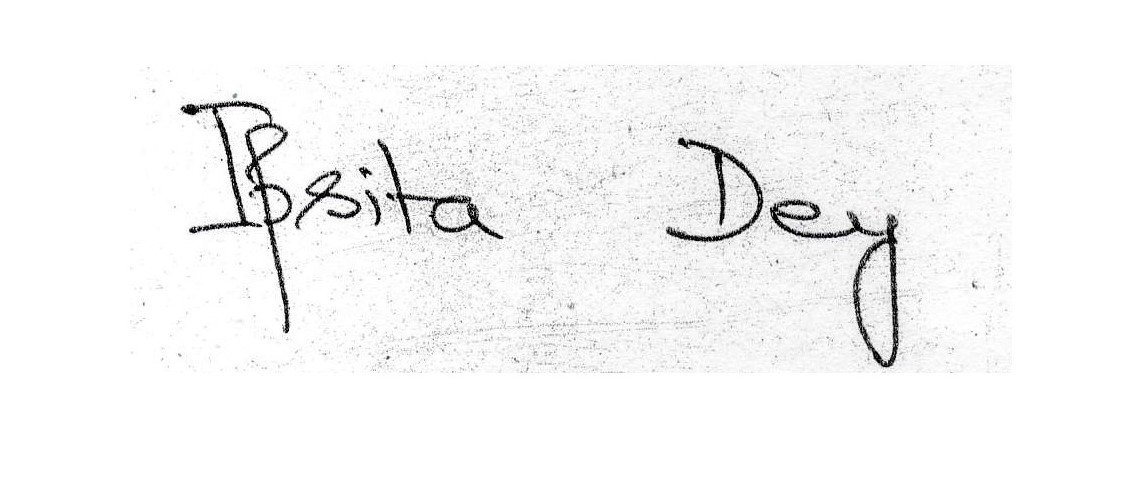 Ipsita Dey